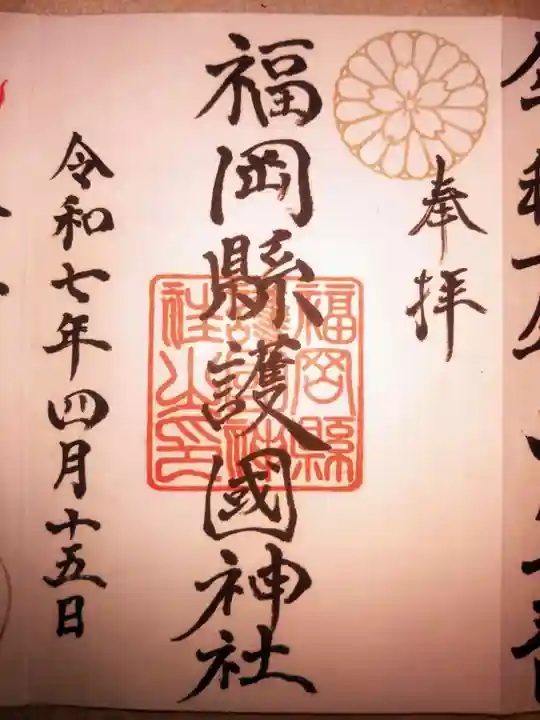 奉拝
福岡縣護國神社
福岡縣護國神社之印
令和七年四月十五日